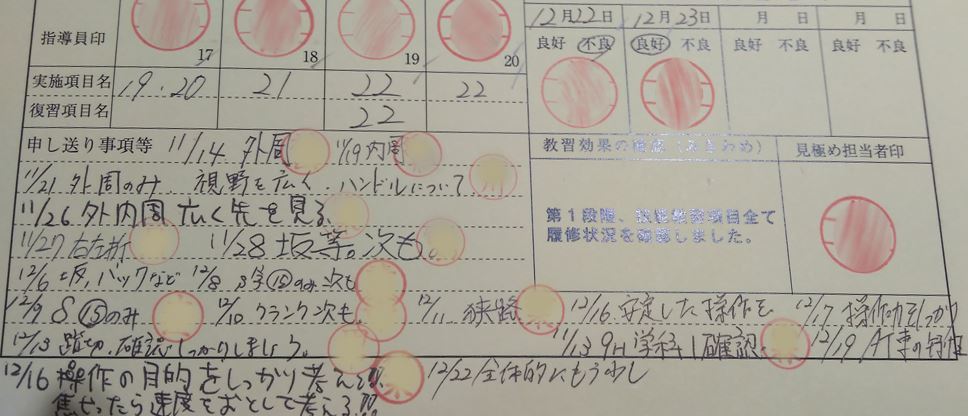 12月22日 12月23日 月 日 月 日
指導員印 17 18 19 20 良好 不良 良好 不良 良好 不良 良好 不良
実施項目名 19.20 21 22 22
復習項目名 22
申し送り事項等 11/14 外周 11/19内周
教習効果の確認(みきわめ) 見極め担当者印
11/21 外周のみ、視野を広く、ハンドルについて
11/26 外内周 広く先を見る
第1段階、技能教習項目全て
履修状況を確認しました。
11/27 右左折 11/28 坂等。次も。
12/6 坂,バックなど 12/8 S字⑮のみ次も
12/9 S ⑮のみ 12/10 クランク次も。 12/11 狭路 12/16 安定した操作を 12/17 操作
12/13 踏切.確認しっかりしましょう。 11/13 9H 学科1確認 12/19 AT車の特性
12/16 操作の目的をしっかり考える!! 12/22 全体的にもう少し
焦ったら速度をおとして考える!!!